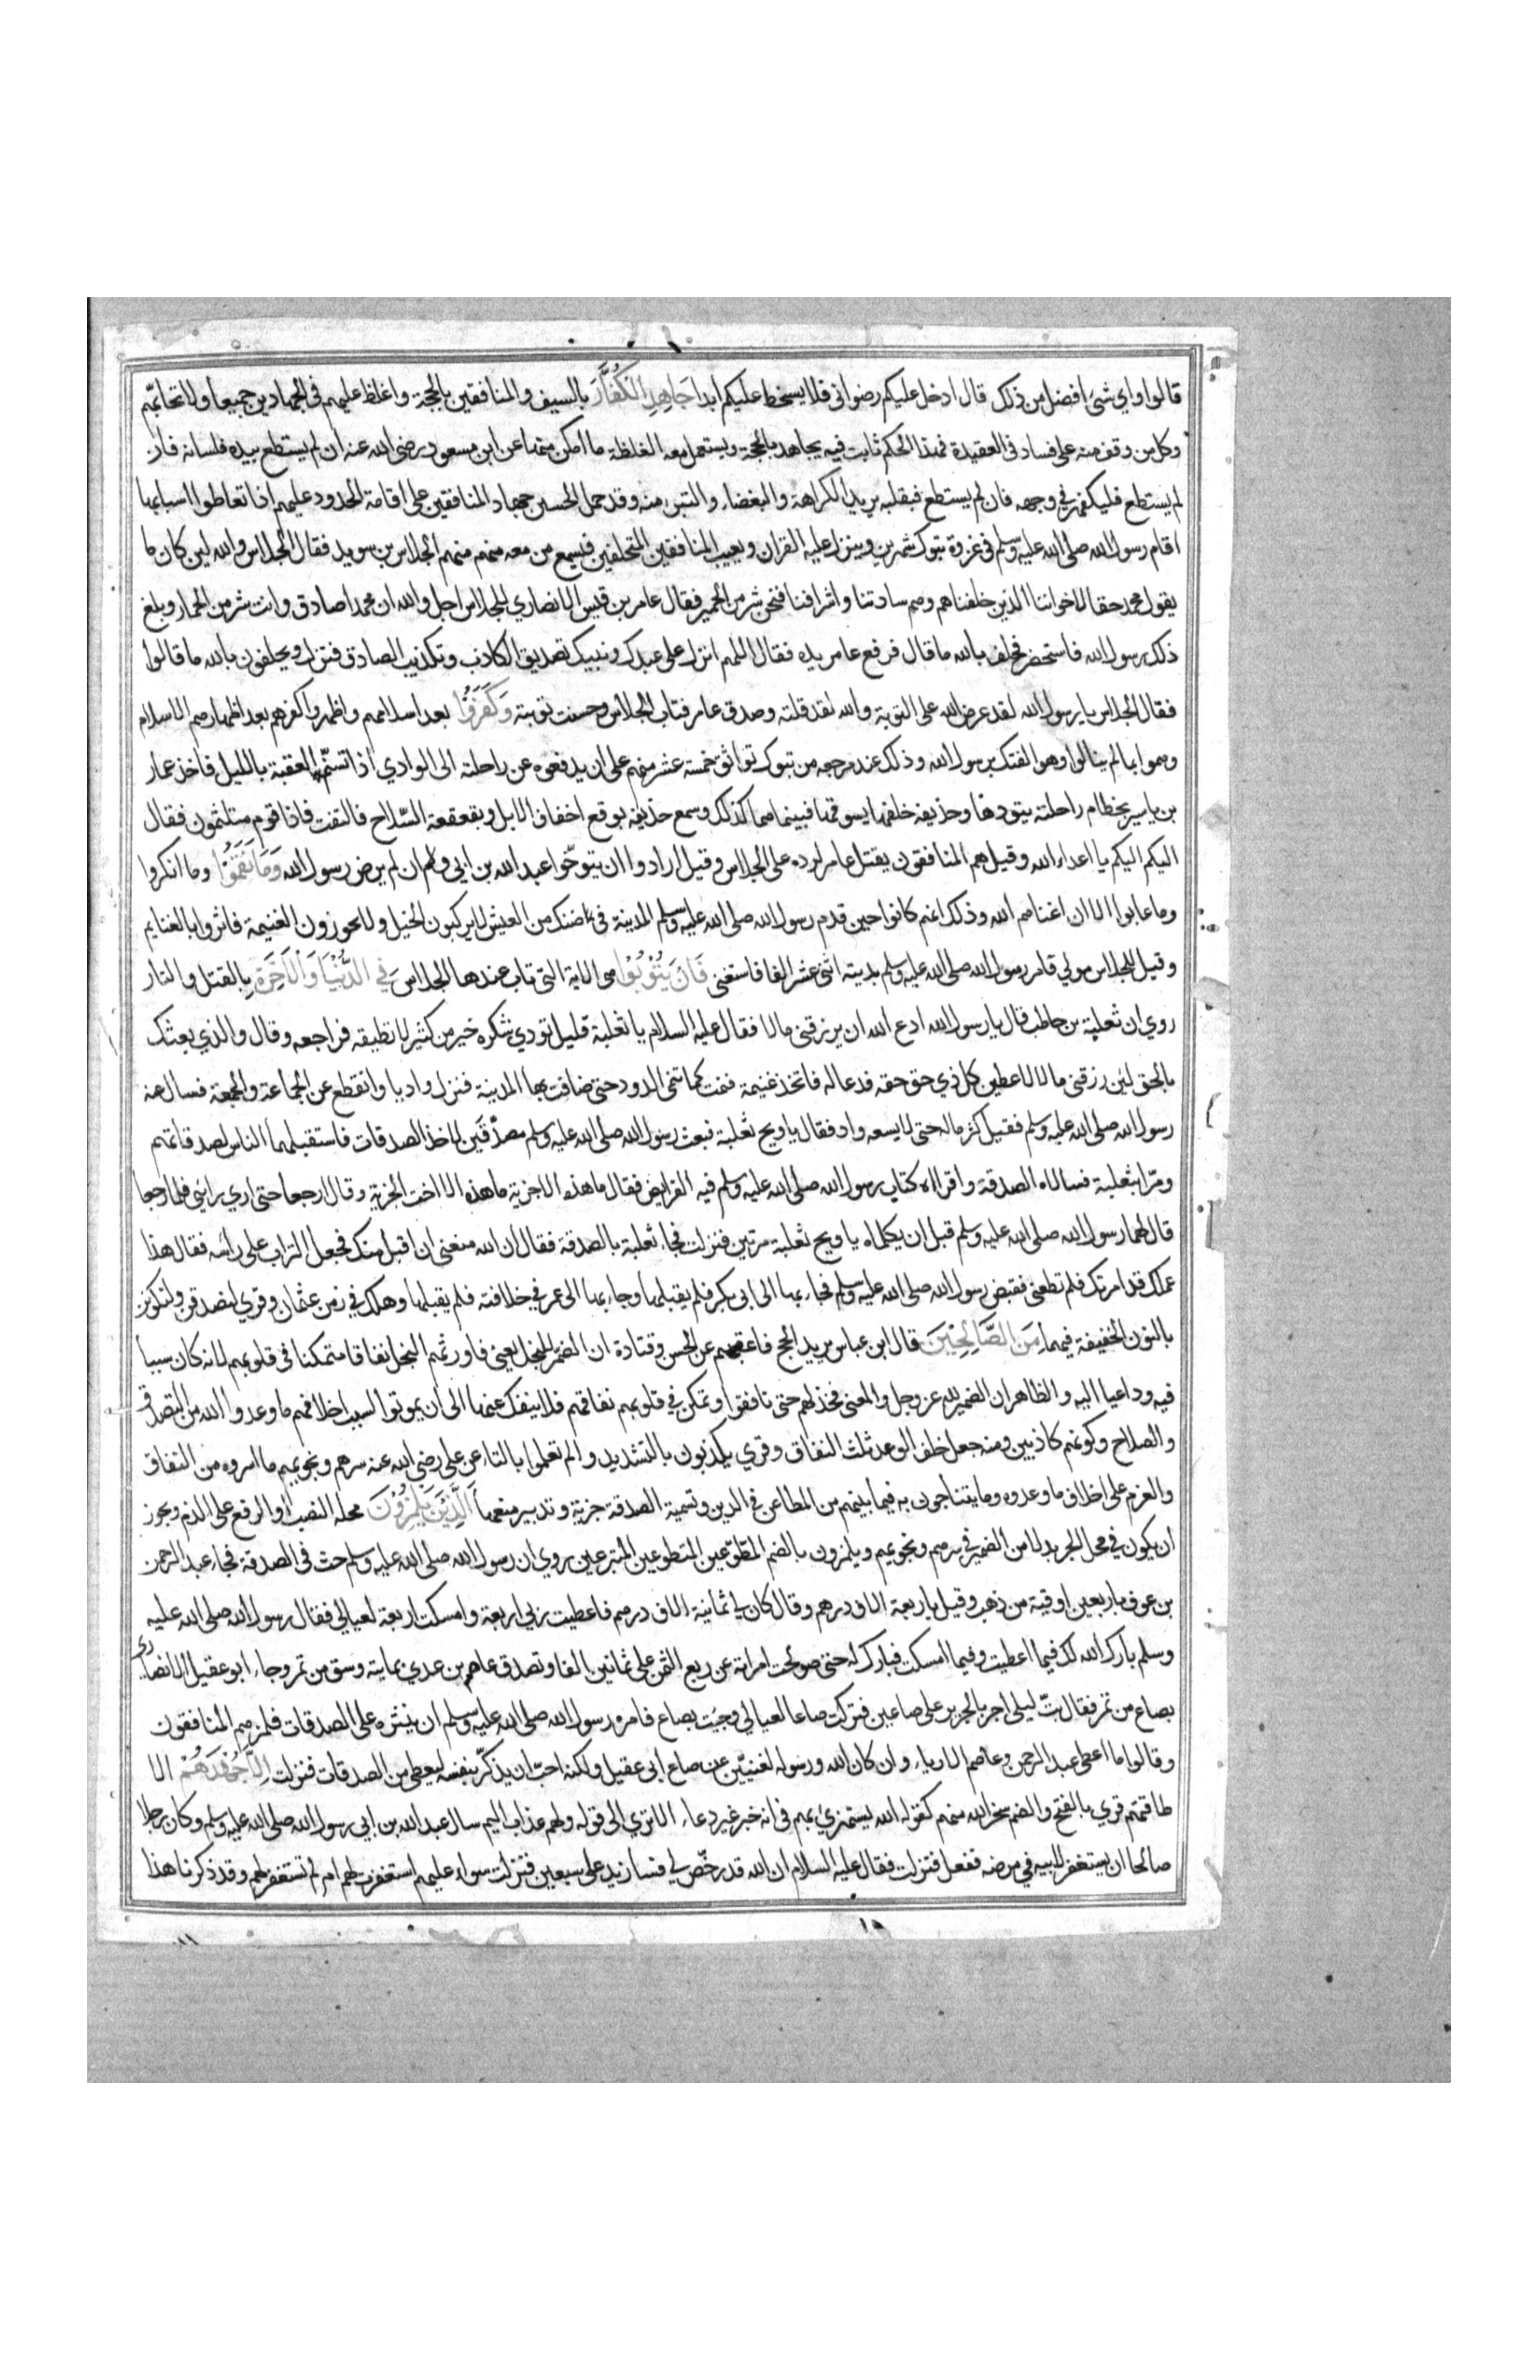 قالوا واي شئ افضل من ذلك قال ادخل عليكم رضواني فلا يسخط عليكم ابدا جَاهِدِ الْكُفَّارَ بالسيف والمنافقين بالحجة واغلظ عليهم في الجهادين جميعا ولا تحابّهم
وكل من وقف منه على فساد في العقيدة فهذا الحكم ثابت فيه يجاهد بالحجة ويستعمل معه الغلظة ما امكن منها عن ابن مسعود رضي الله عنه ان لم يستطع بيده فلسانه فان
لم يستطع فليكفهر في وجهه فان لم يستطع فبقلبه يريد الكراهة والبغضاء والتبرء منه وقد حمل الحسن جهاد المنافقين على اقامة الحدود عليهم اذا تعاطوا اسبابها
اقام رسول الله صلى الله عليه وسلم في غزوة تبوك شهرين وينزل عليه القران ويعيب المنافقين المتخلفين فيسمع من معه منهم منهم الجلاس بن سويد فقال الجلاس والله لين كان ما
يقول محمد حقا لاخواننا الذين خلفناهم وهم ساداتنا واشرافنا فنحن شر من الحمير فقال عامر بن قيس الانصاري للجلاس اجل والله ان محمدا صادق وانت شر من الحمار وبلغ
ذلك رسول الله فاستحضر فحلف بالله ما قال فرفع عامر يده فقال اللهم انزل على عبدك ونبيك تصديق الكاذب وتكذيب الصادق فنزل ويحلفون بالله ما قالوا
فقال الجلاس يا رسول الله لقد عرض الله على التوبة والله لقد قلته وصدق عامر فتاب الجلاس وحسنت توبته وَكَفَرُوْا بعد اسلامهم واظهروا كفرهم بعد اظهارهم الاسلام
وهموا بما لم ينالوا وهو الفتك برسول الله وذلك عند مرجعه من تبوك تواثق خمسة عشر منهم على ان يدفعوه عن راحلته الى الوادي اذا تسنّم العقبة بالليل فاخذ عمار
بن ياسر بخطام راحلته يقودها وحذيفة خلفها يسوقها فبينما هما كذلك وسمع حذيفة بوقع اخفاف الابل وبقعقعة السّلاح فالتفت فاذا قوم متلثمون فقال
اليكم اليكم يا اعداء الله وقيل هم المنافقون بقتل عامر لرده على الجلاس وقيل ارادوا ان يتوّجوا عبد الله بن ابي وان لم يرض رسول الله وَمَا نَقَمُوْا وما انكروا
وما عابوا الا ان اغناهم الله وذلك انهم كانوا حين قدم رسول الله صلى الله عليه وسلم المدينة في ضنك من العيش لا يركبون الخيل ولا يحوزون الغنيمة فاثروا بالغنايم
وقيل للجلاس مولي فامر رسول الله صلى الله عليه وسلم بديته اثنى عشر الفا فاستغنى فَاِنْ يَتُوْبُوْا هي الاية التي تاب عندها الجلاس فِي الدُّنْيَا وَالْاٰخِرَةِ بالقتل والنار
روي ان ثعلبة بن حاطب قال يا رسول الله ادع الله ان يرزقني مالا فقال عليه السلام يا ثعلبة قليل تودي شكره خير من كثير لا تطيقه فراجعه وقال والذي بعثك
بالحق لئن رزقني مالا لاعطين كل ذي حق حقه فدعا له فاتخذ غنيمة فنمت كما تنمى الدود حتى ضاقت بها المدينة فنزل واديا وانقطع عن الجماعة والجمعة فسال عنه
رسول الله صلى الله عليه وسلم فقيل كثر ماله حتى لا يسعه واد فقال يا ويح ثعلبة فبعث رسول الله صلى الله عليه وسلم مصدّقَين لاخذ الصدقات فاستقبلهما الناس لصدقاتهم
ومرّا بثعلبة فسالاه الصدقة واقراه كتاب رسول الله صلى الله عليه وسلم فيه الفرايض فقال ما هذه الا جزية ما هذه الا اخت الجزية وقال ارجعا حتى اري رائي فلما رجعا
قال لهما رسول الله صلى الله عليه وسلم قبل ان يكلماه يا ويح ثعلبة مرتين فنزلت فجاء ثعلبة بالصدقة فقال ان الله منعني ان اقبل منك فجعل التراب على راسه فقال هذا
عملك قد امرتك فلم تطعني فقبض رسول الله صلى الله عليه وسلم فجاء بها الى ابي بكر فلم يقبلها وجاء بها الى عمر في خلافته فلم يقبلها وهلك في زمن عثمان وقري لنصدقن ولنكونن
بالنون الخفيفة فيهما مِنَ الصَّالِحِيْنَ قال ابن عباس يريد الحج فاعقبهم عن الحسن وقتادة ان الضمير للبخل يعني فاورثهم البخل نفاقا متمكنا في قلوبهم لانه كان سببا
فيه وداعيا اليه والظاهر ان الضمير لله عز وجل والمعنى فخذلهم حتى نافقوا وتمكن في قلوبهم نفاقهم فلا ينفك عنها الى ان يموتوا بسبب اخلافهم ما وعدوا الله من التصدق
والصلاح وكونهم كاذبين ومنه جعل خلف الوعد ثلث النفاق وقري يكذبون بالتشديد والم تعلموا بالتاء عن علي رضي الله عنه سرهم ونجويهم ما اسروه من النفاق
والعزم على اخلاف ما وعدوه وما يتناجون به فيما بينهم من المطاعن في الدين وتسمية الصدقة جزية وتدبير منعها اَلَّذِيْنَ يَلْمِزُوْنَ محله النصب او الرفع على الذم ويجوز
ان يكون في محل الجر بدلا من الضمير في سرهم ونجويهم ويلمزون بالضم المطّوّعين المتطوعين المتبرعين روي ان رسول الله صلى الله عليه وسلم حث في الصدقة فجاء عبد الرحمن
بن عوف باربعين اوقية من ذهب وقيل باربعة الاف درهم وقال كان لي ثمانية الاف درهم فاعطيت ربي اربعة وامسكت اربعة لعيالي فقال رسول الله صلى الله عليه
وسلم بارك الله لك فيما اعطيت وفيما امسكت فبارك له حتى صولحت امراته عن ربع الثمن على ثمانين الفا وتصدق عاصم بن عدي بماية وسق من تمر وجاء ابو عقيل الانصاري
بصاع من تمر فقال بتّ ليلى اجر بالجرير على صاعين فتركت صاعا لعيالي وجيت بصاع فامره رسول الله صلى الله عليه وسلم ان ينثره على الصدقات فلمزهم المنافقون
وقالوا ما اعطى عبد الرحمن وعاصم الا رياء وان كان الله ورسوله لغنيّين عن صاع ابي عقيل ولكنه احبّ ان يذكّر بنفسه ليعطى من الصدقات فنزلت اِلَّا جُهْدَهُمْ الا
طاقتهم قري بالفتح والضم سخر الله منهم كقوله الله يستهزئ بهم في انه خبر غير دعاء الا تري الى قوله ولهم عذاب اليم سال عبد الله بن ابي رسول الله صلى الله عليه وسلم وكان رجلا
صالحا ان يستغفر لابيه في مرضه ففعل فنزلت فقال عليه السلام ان الله قد رخّص لي فسازيد على سبعين فنزلت سواء عليهم استغفرت لهم ام لم تستغفر لهم وقد ذكرنا هذا